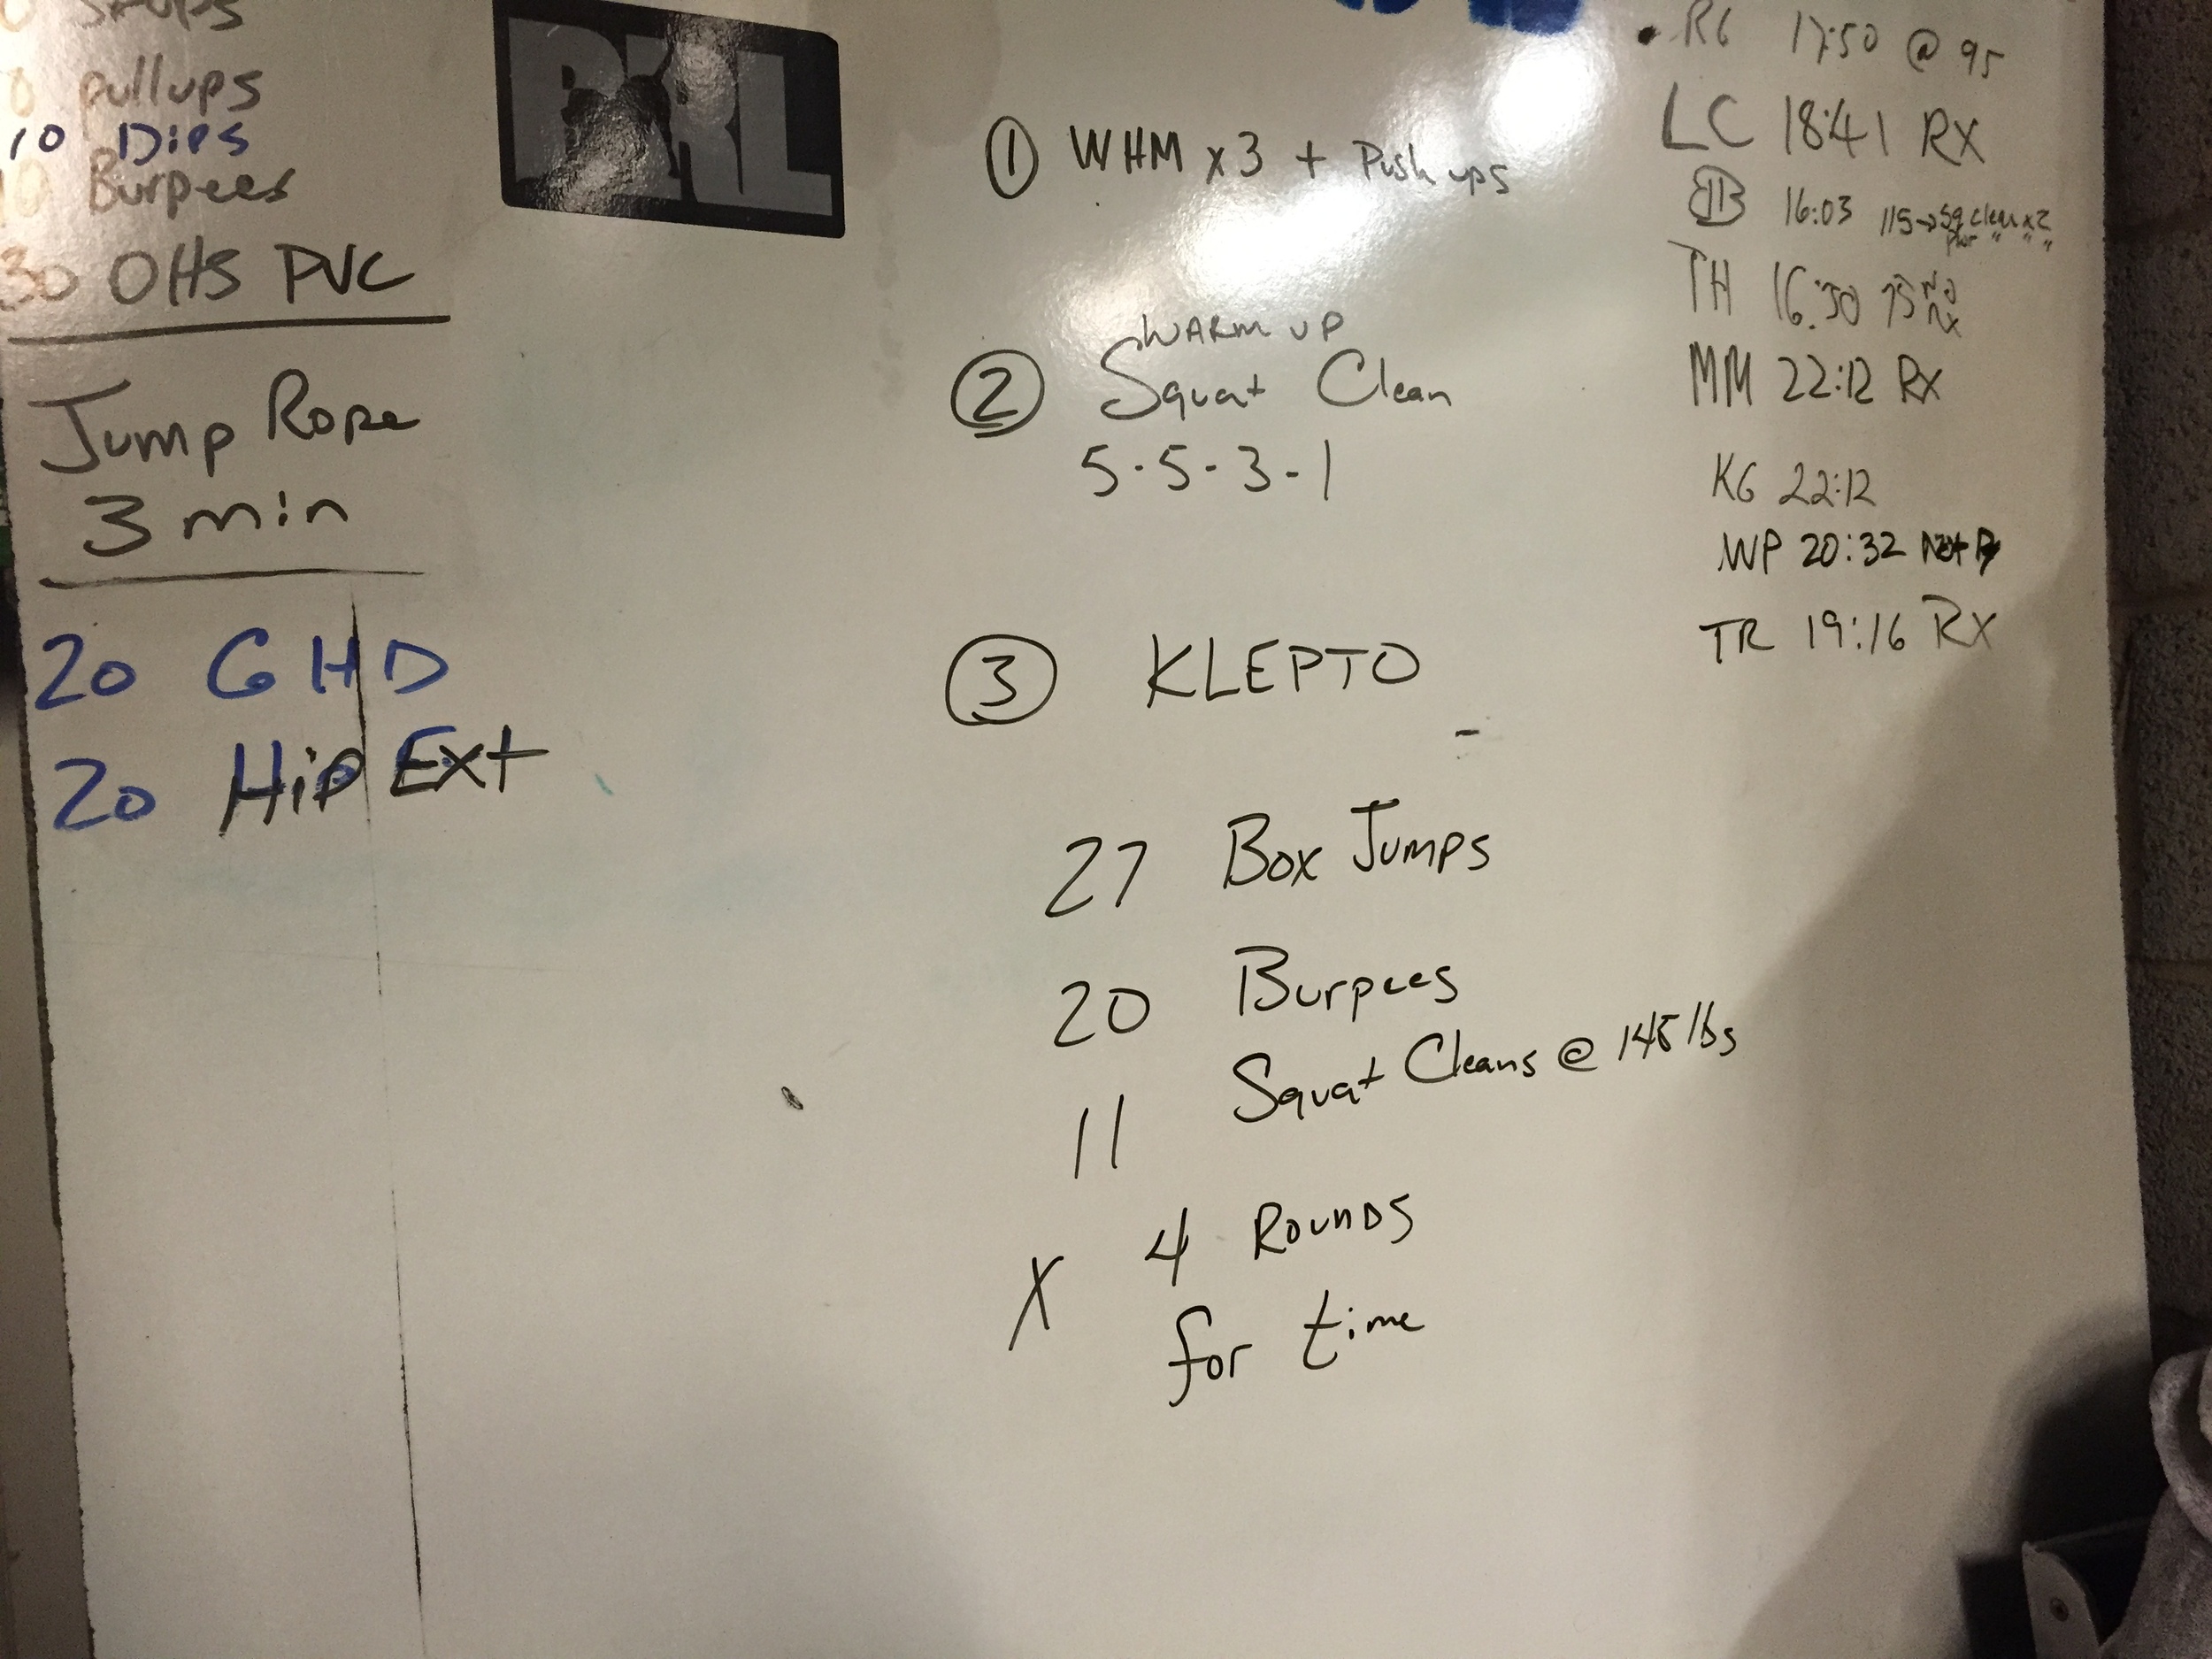 pullups
10 Dips
Burpees
30 OHS PVC
Jump Rope
3 min
20 GHD
20 Hip Ext
① WHM x 3 + Push ups
② WARM UP
Squat Clean
5-5-3-1
③ KLEPTO
27 Box Jumps
20 Burpees
11 Squat Cleans @ 145 lbs
X 4 Rounds
for time
RG 17:50 @ 95
LC 18:41 RX
16:03 115→Sq clean x2
TH 16:30 75 NO RX
MM 22:12 RX
KG 22:12
WP 20:32 Not
TR 19:16 RX